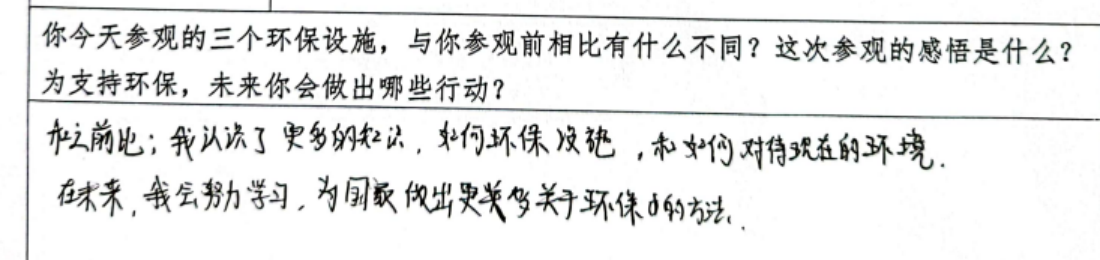 你今天参观的三个环保设施，与你参观前相比有什么不同？这次参观的感悟是什么？
为支持环保，未来你会做出哪些行动？
和之前比；我认识了更多的知识，如何环保设施，和如何对待现在的环境.
在未来，我会努力学习，为国家做出更多关于环保的方法.